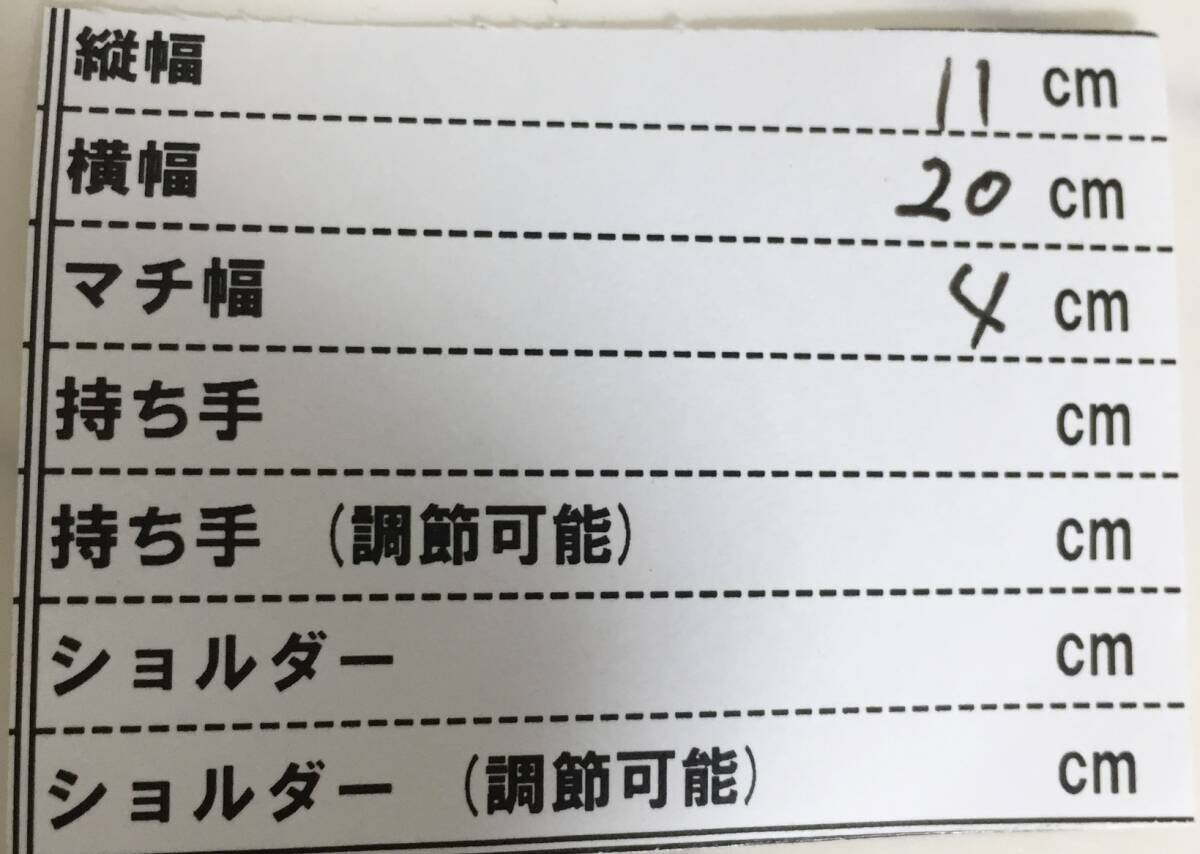 縦幅 11 cm
横幅 20 cm
マチ幅 4 cm
持ち手 cm
持ち手 (調節可能) cm
ショルダー cm
ショルダー (調節可能) cm